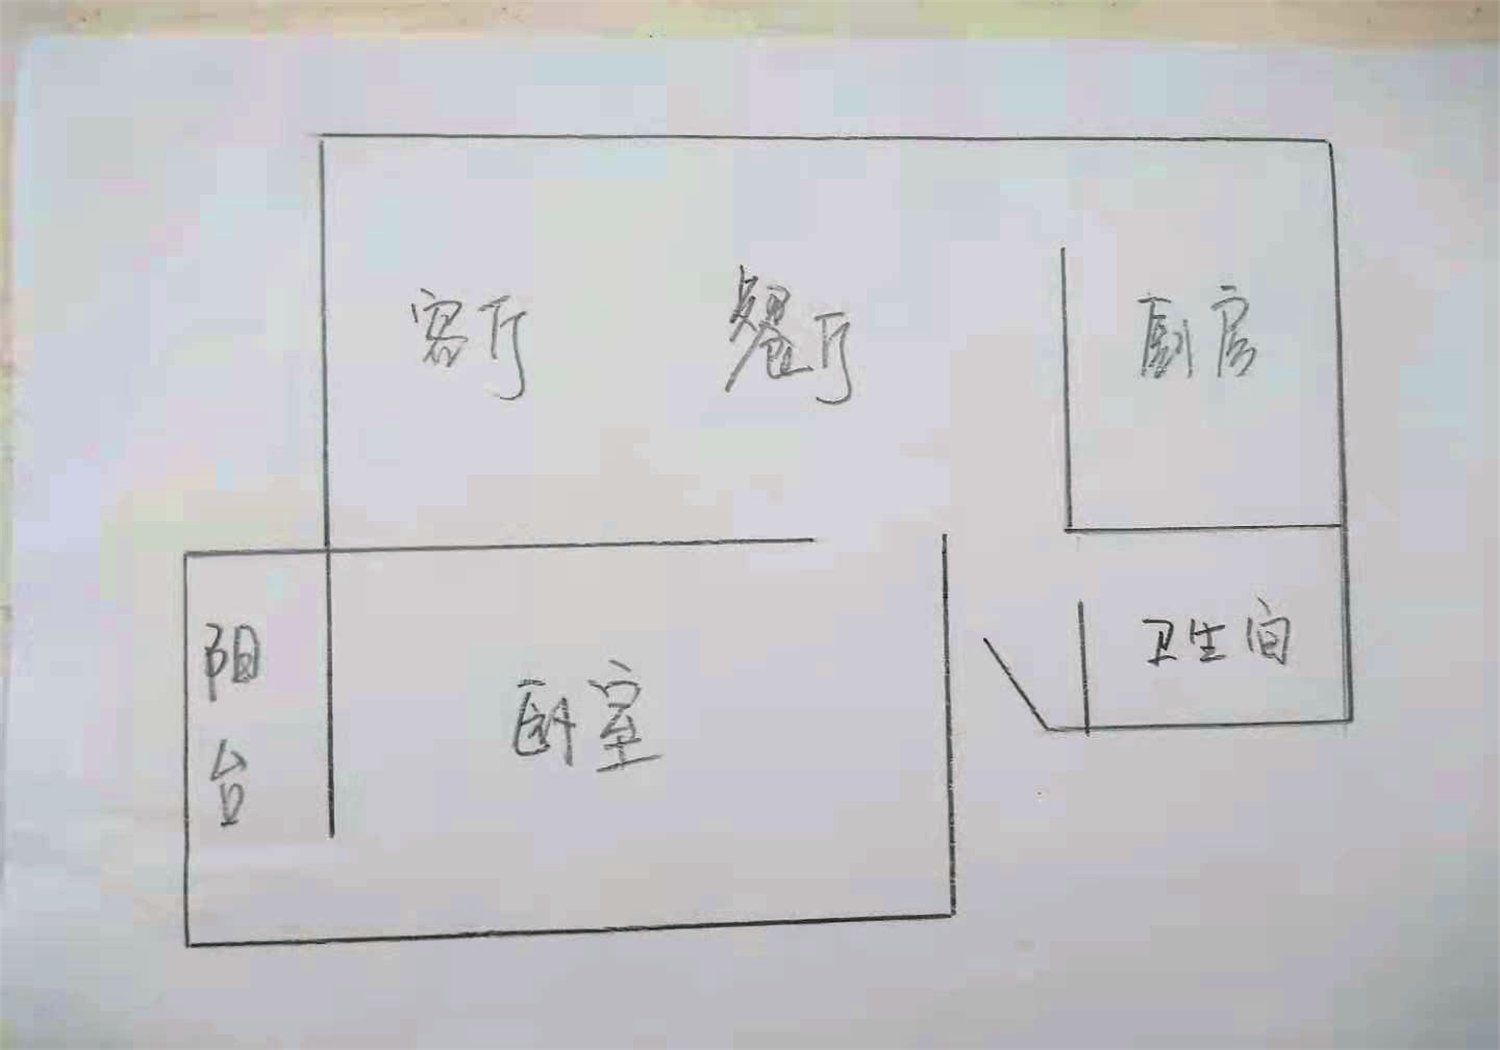 客厅
餐厅
厨房
卫生间
阳台
卧室